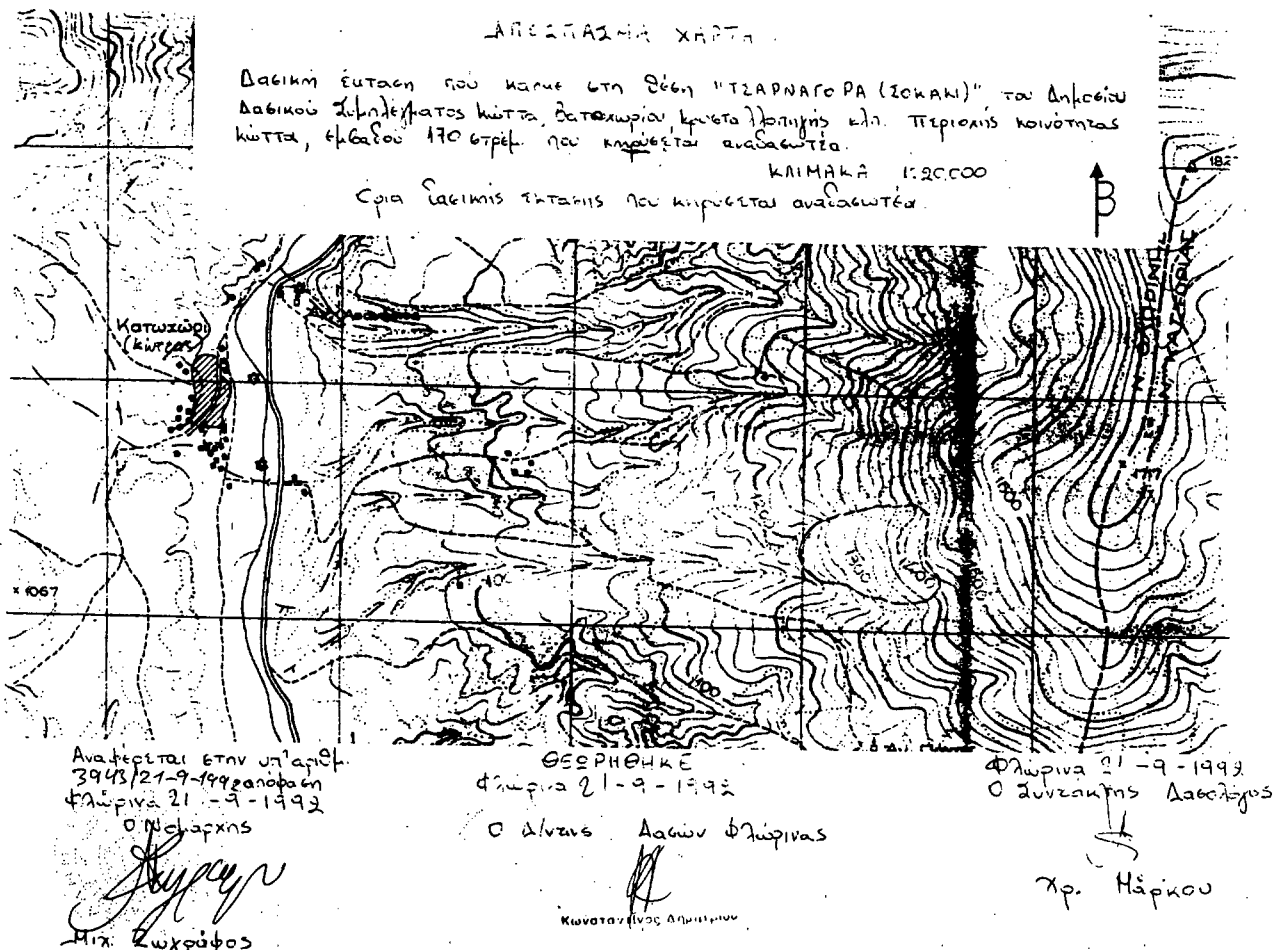 ΑΠΟΣΠΑΣΜΑ ΧΑΡΤΗ
Δασική έκταση που κάηκε στη θέση "ΤΣΑΡΝΑΓΟΡΑ (ΣΟΚΑΚΙ)", του Δημοσίου
Δασικού Συμπλέγματος Κώττα, Βατοχωρίου, Κρυσταλλοπηγής κλπ. Περιοχής κοινότητας
Κώττα, εμβαδού 170 στρεμ. που κηρύσεται αναδασωτέα.
ΚΛΙΜΑΚΑ 1:20.000
Όρια δασικής έκτασης που κηρύσεται αναδασωτέα.
Β
182
Ν. ΦΛΩΡΙΝΗΣ
Ν. ΚΑΣΤΟΡΙΑΣ
Κατωχώρι
1200
1500
1300
1400
x 1067
1100
Αναφέρεται στην υπ' αριθμ.
3943/21-9-1992 απόφαση
Φλώρινα 21-9-1992
Ο Νομάρχης
Μιχ. Ζωγράφος
ΘΕΩΡΗΘΗΚΕ
Φλώρινα 21-9-1992
Ο Δ/ντης Δασών Φλώρινας
Κωνσταντίνος Δημητρίου
Φλώρινα 21-9-1992
Ο Συντάκτης Δασολόγος
Χρ. Μάρκου